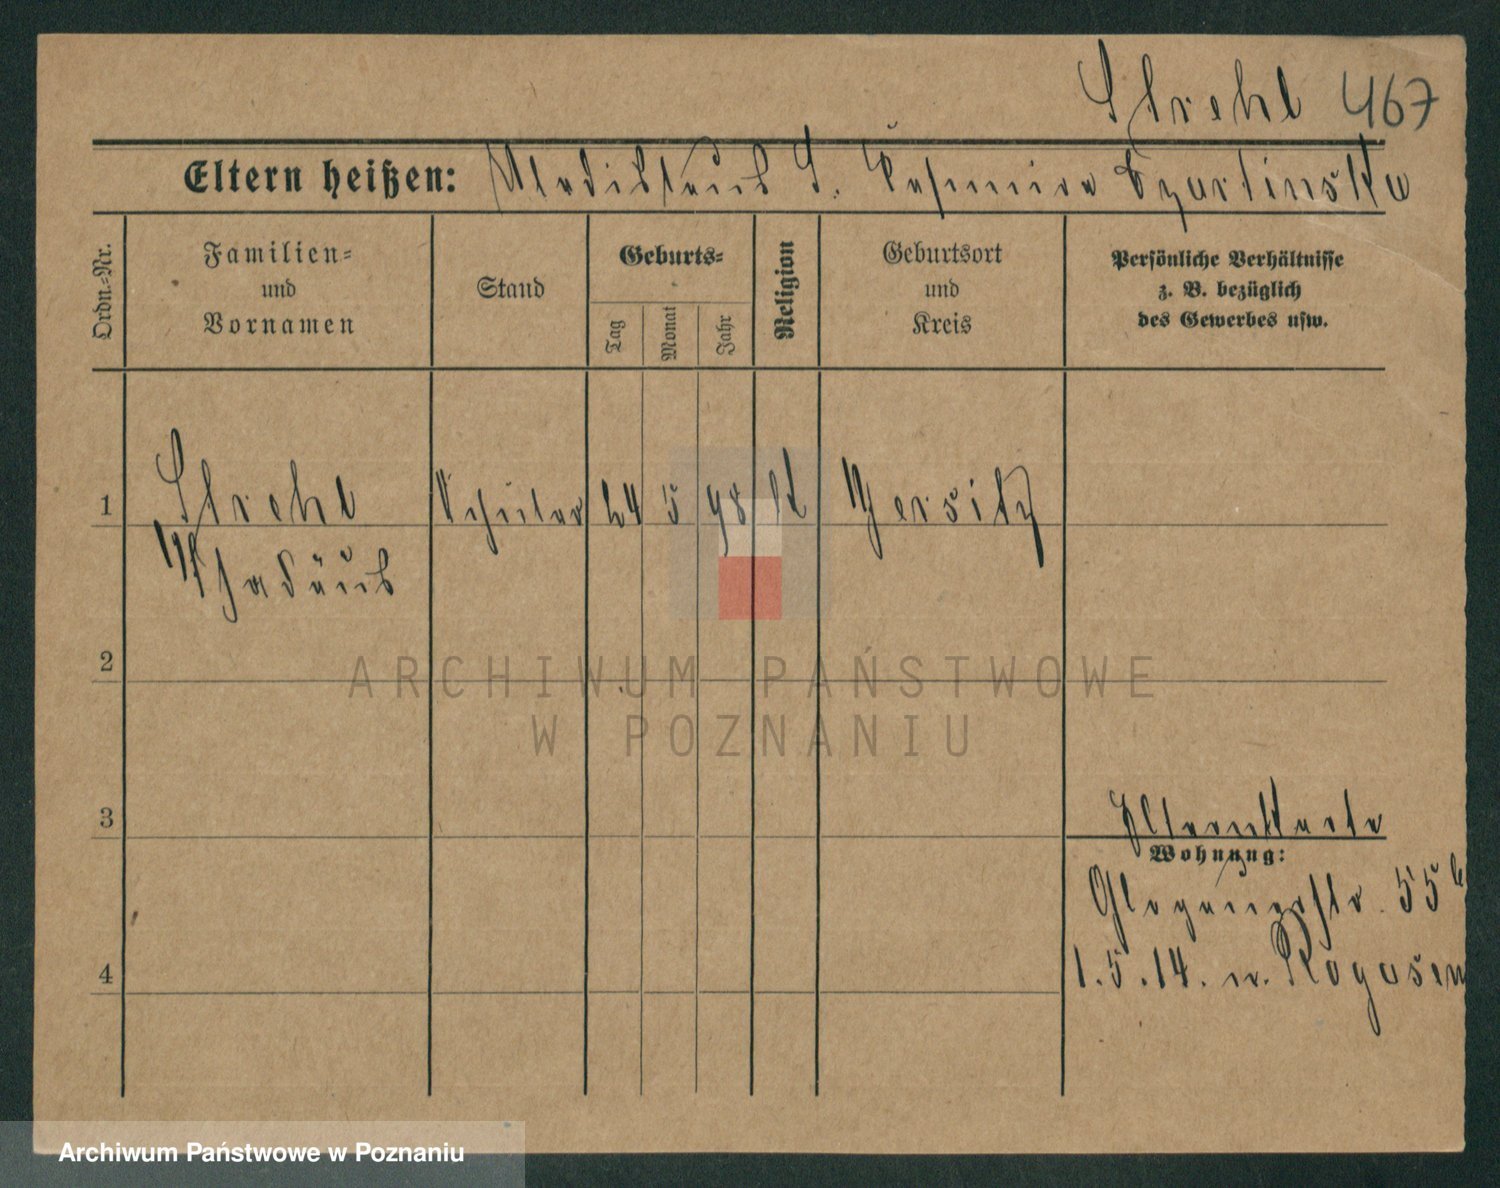 Strehl 467
Eltern heißen: Wladislaus S. Casimira Czartinska
Ordn.-Nr.
Familien-
und
Vornamen
Stand
Geburts-
Tag
Monat
Jahr
Religion
Geburtsort
und
Kreis
Persönliche Verhältnisse
z. B. bezüglich
des Gewerbes usw.
1 Strehl Schüler 24 5 98 kt Jersitz
Thadäus
2
3
Elternkarte
Wohnung:
Glogauerstr. 55
4
1.5.14. n. Rogasen
ARCHIWUM PAŃSTWOWE
W POZNANIU
Archiwum Państwowe w Poznaniu